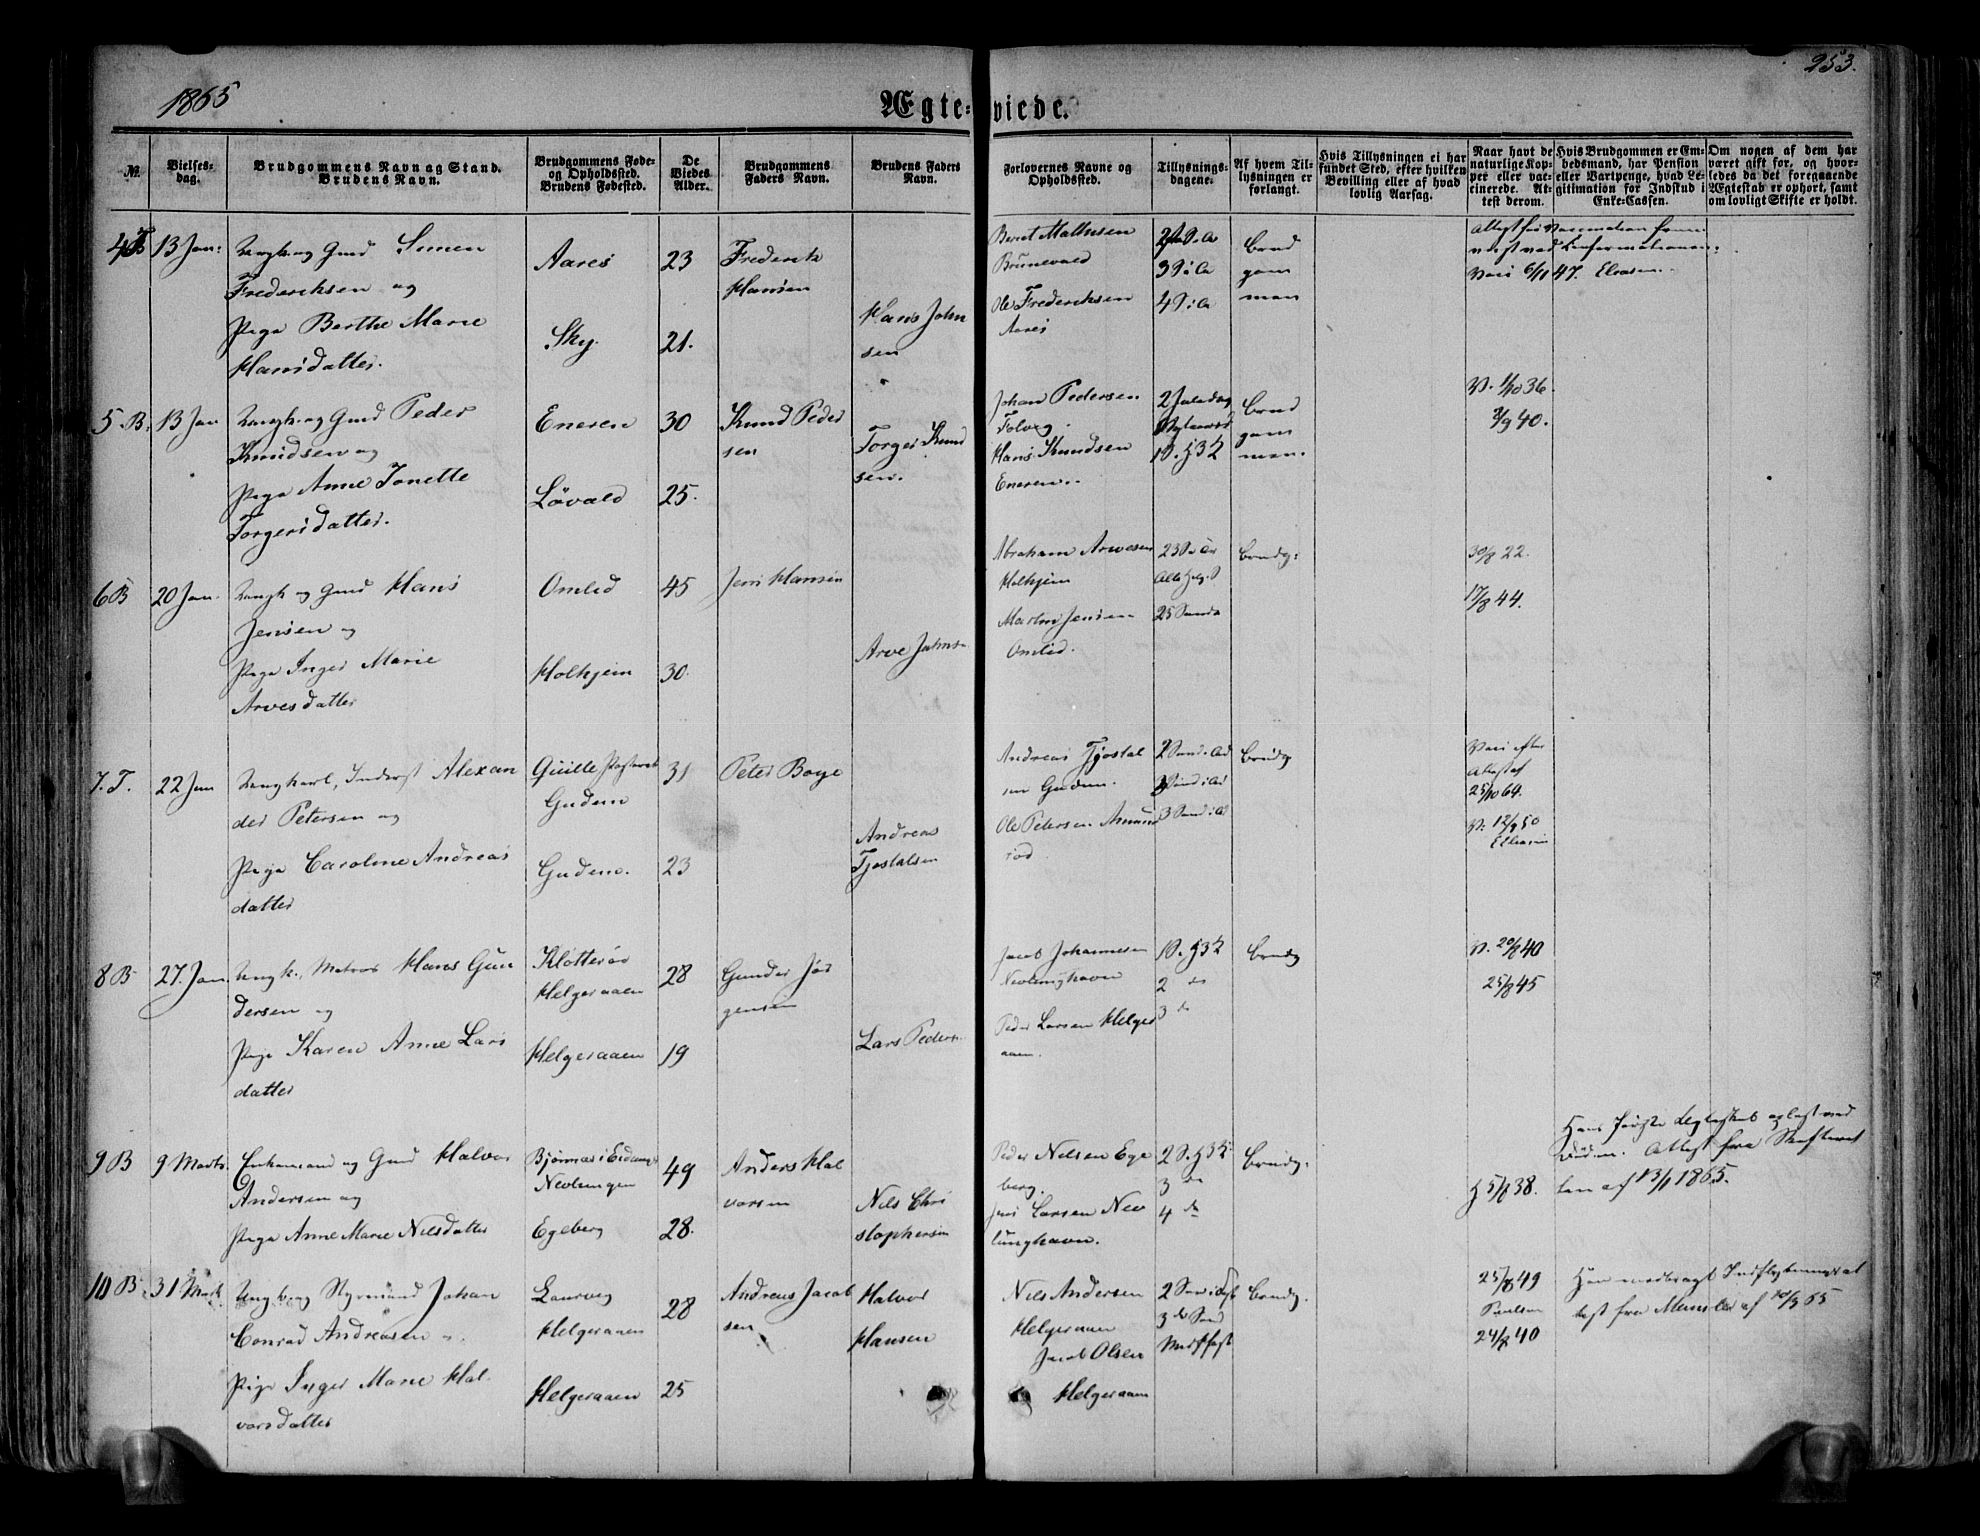 1865
Ægte-viede.
253.
№
Vielses-
dag.
Brudgommens Navn og Stand.
Brudens Navn.
Brudgommens Føde-
og Opholdssted.
Brudens Fødested.
De
Viedes
Alder.
Brudgommens
Faders Navn.
Brudens Faders
Navn.
Forlovernes Navne og
Opholdssted.
Tillysnings-
dagene.
Af hvem Til-
lysningen er
forlangt.
Hvis Tillysningen ei har
fundet Sted, efter hvilken
Bevilling eller af hvad
lovlig Aarsag.
Naar havt de
naturlige Kop-
per eller vac-
cinerede. At-
test derom.
Hvis Brudgommen er Em-
bedsmand, har Pension
eller Vartpenge, hvad Le-
gitimation for Indskud i
Enke-Cassen.
Om nogen af dem har
været gift før, og hvor-
ledes da det foregaaende
Ægteskab er ophørt, samt
om lovligt Skifte er holdt.
13 Jan:
Ungk. og Gmd Simen
Frederiksen og
Pige Berthe Marie
Hansdatter.
Aares
Sky.
23
21.
Frederik
Hansen
Hans John
sen
Bernt Mathisen
Brunevald
Ole Frederiksen
Aares
2 S. i A
3 S. i A
4 S. i A
Brud
gom
men
Vacc 6/11 47. Eliasen.
5 B.
13 Jan
Ungk. og Gmd Peder
Knudsen og
Pige Anne Jonette
Torgersdatter.
Eneren
Løvald
30
25.
Knud Peder
sen
Torger Knud
sen.
Johan Pedersen
Folvog.
Hans Knudsen
Eneren.
2 Juledag
Nytaarsd
1 S. H 3 K
Brud
gom
men.
V. 1/10 36.
3/9 40.
6 B
20 Jan.
Ungk og Gmd Hans
Jensen og
Pige Inger Marie
Arvesdatter
Omlid
Holhjem
45
30.
Jens Hansen
Arve Johns
Abraham Arvesen
Holhjem
Martin Jensen
Omlid.
23 S. e Tr
Alle Helg. S
25 Sunde
Brudg:
30/8 22.
17/8 44.
7. T.
22 Jan
Ungkarl, Inderst Alexan
der Petersen og
Pige Caroline Andreas
datter
Guille
Gudem
Gudem.
31
23
Peter Boye
Andreas
Tjøstolsen
Andreas Tjøstol
sen Gudem.
Ole Petersen Amund
rød
2 Sund. i Ad
3 Sund i Ad
Brudg
Vacc efter
Attest af
25/10 64.
V. 12/9 50
Eliasen
8 B
27. Jan.
Ungk. Matros Hans Gun
dersen og
Pige Karen Anne Lars
datter
Klotterød
Helgeraaen
Helgeraaen
28
19
Gunder Jør
gensen
Lars Peders.
Jacob Johannesen
Nevlunghavn
Peder Larsen Helger
aaen.
1 S. H 3 K
2 do
3 do
Brudg
V. 20/8 40
25/8 45
9 B
9 Marts
Enkemand og Gmd Halvor
Andersen og
Pige Anne Marie Nilsdatter
Bjørnæs i Eidang
Nevlungen
Egeberg
49
28.
Anders Hal
vorsen
Nils Chri
stophersen
Peder Nilsen Ege
berg.
Jens Larsen Nev
lunghavn.
2 S. H 3 K
3 do
4 do
Brudg.
25/8 38.
Hans første Ægteskab opløst ved
Døden. Attest fra Skifteret
ten af 13/1 1865.
10 B
31 Marts
Ungk. og Styrmand Johan
Conrad Andreasen og
Pige Inger Marie Hal
vorsdatter
Laurvig
Helgeraaen
Helgeraaen
28
25
Andreas Jacob
sen
Halvor
Hansen
Nils Andersen
Helgeraaen
Jacob Olsen
Helgeraaen
2 Søn i Fast
3 do Sønd
Midtfast
Brudg.
25/8 49
24/8 40
Han medbragt Indflytningsat
test fra